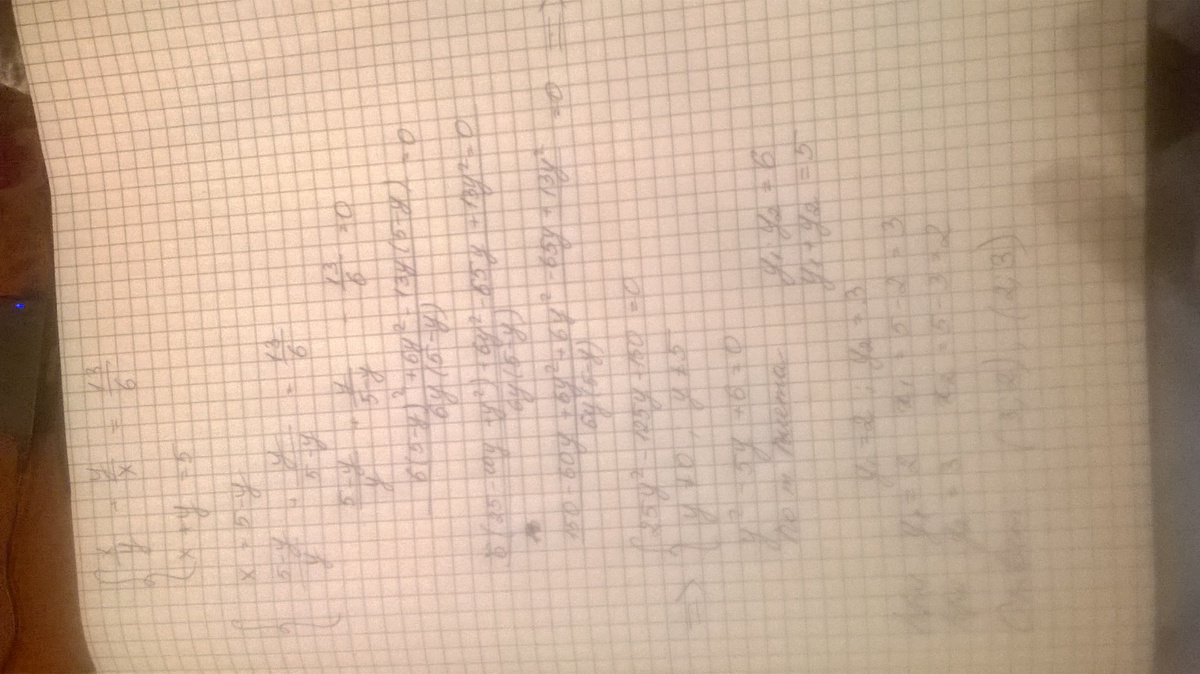 { x/y + y/x = 13/6
{ x + y = 5
{ x = 5 - y
{ 5-y/y + y/5-y = 13/6
5-y/y + y/5-y - 13/6 = 0
6(5-y)² + 6y² - 13y(5-y) / 6y(5-y) = 0
6(25-10y+y²) + 6y² - 65y + 13y² / 6y(5-y) = 0
150 - 60y + 6y² + 6y² - 65y + 13y² / 6y(5-y) = 0 =>
=> { 25y² - 125y + 150 = 0
{ y ≠ 0, y ≠ 5
y² - 5y + 6 = 0
по т. Виета: y₁ · y₂ = 6
y₁ + y₂ = 5
y₁ = 2, y₂ = 3
y₁ = 2 x₁ = 5 - 2 = 3
y₂ = 3 x₂ = 5 - 3 = 2
Ответ: (3,2), (2,3)